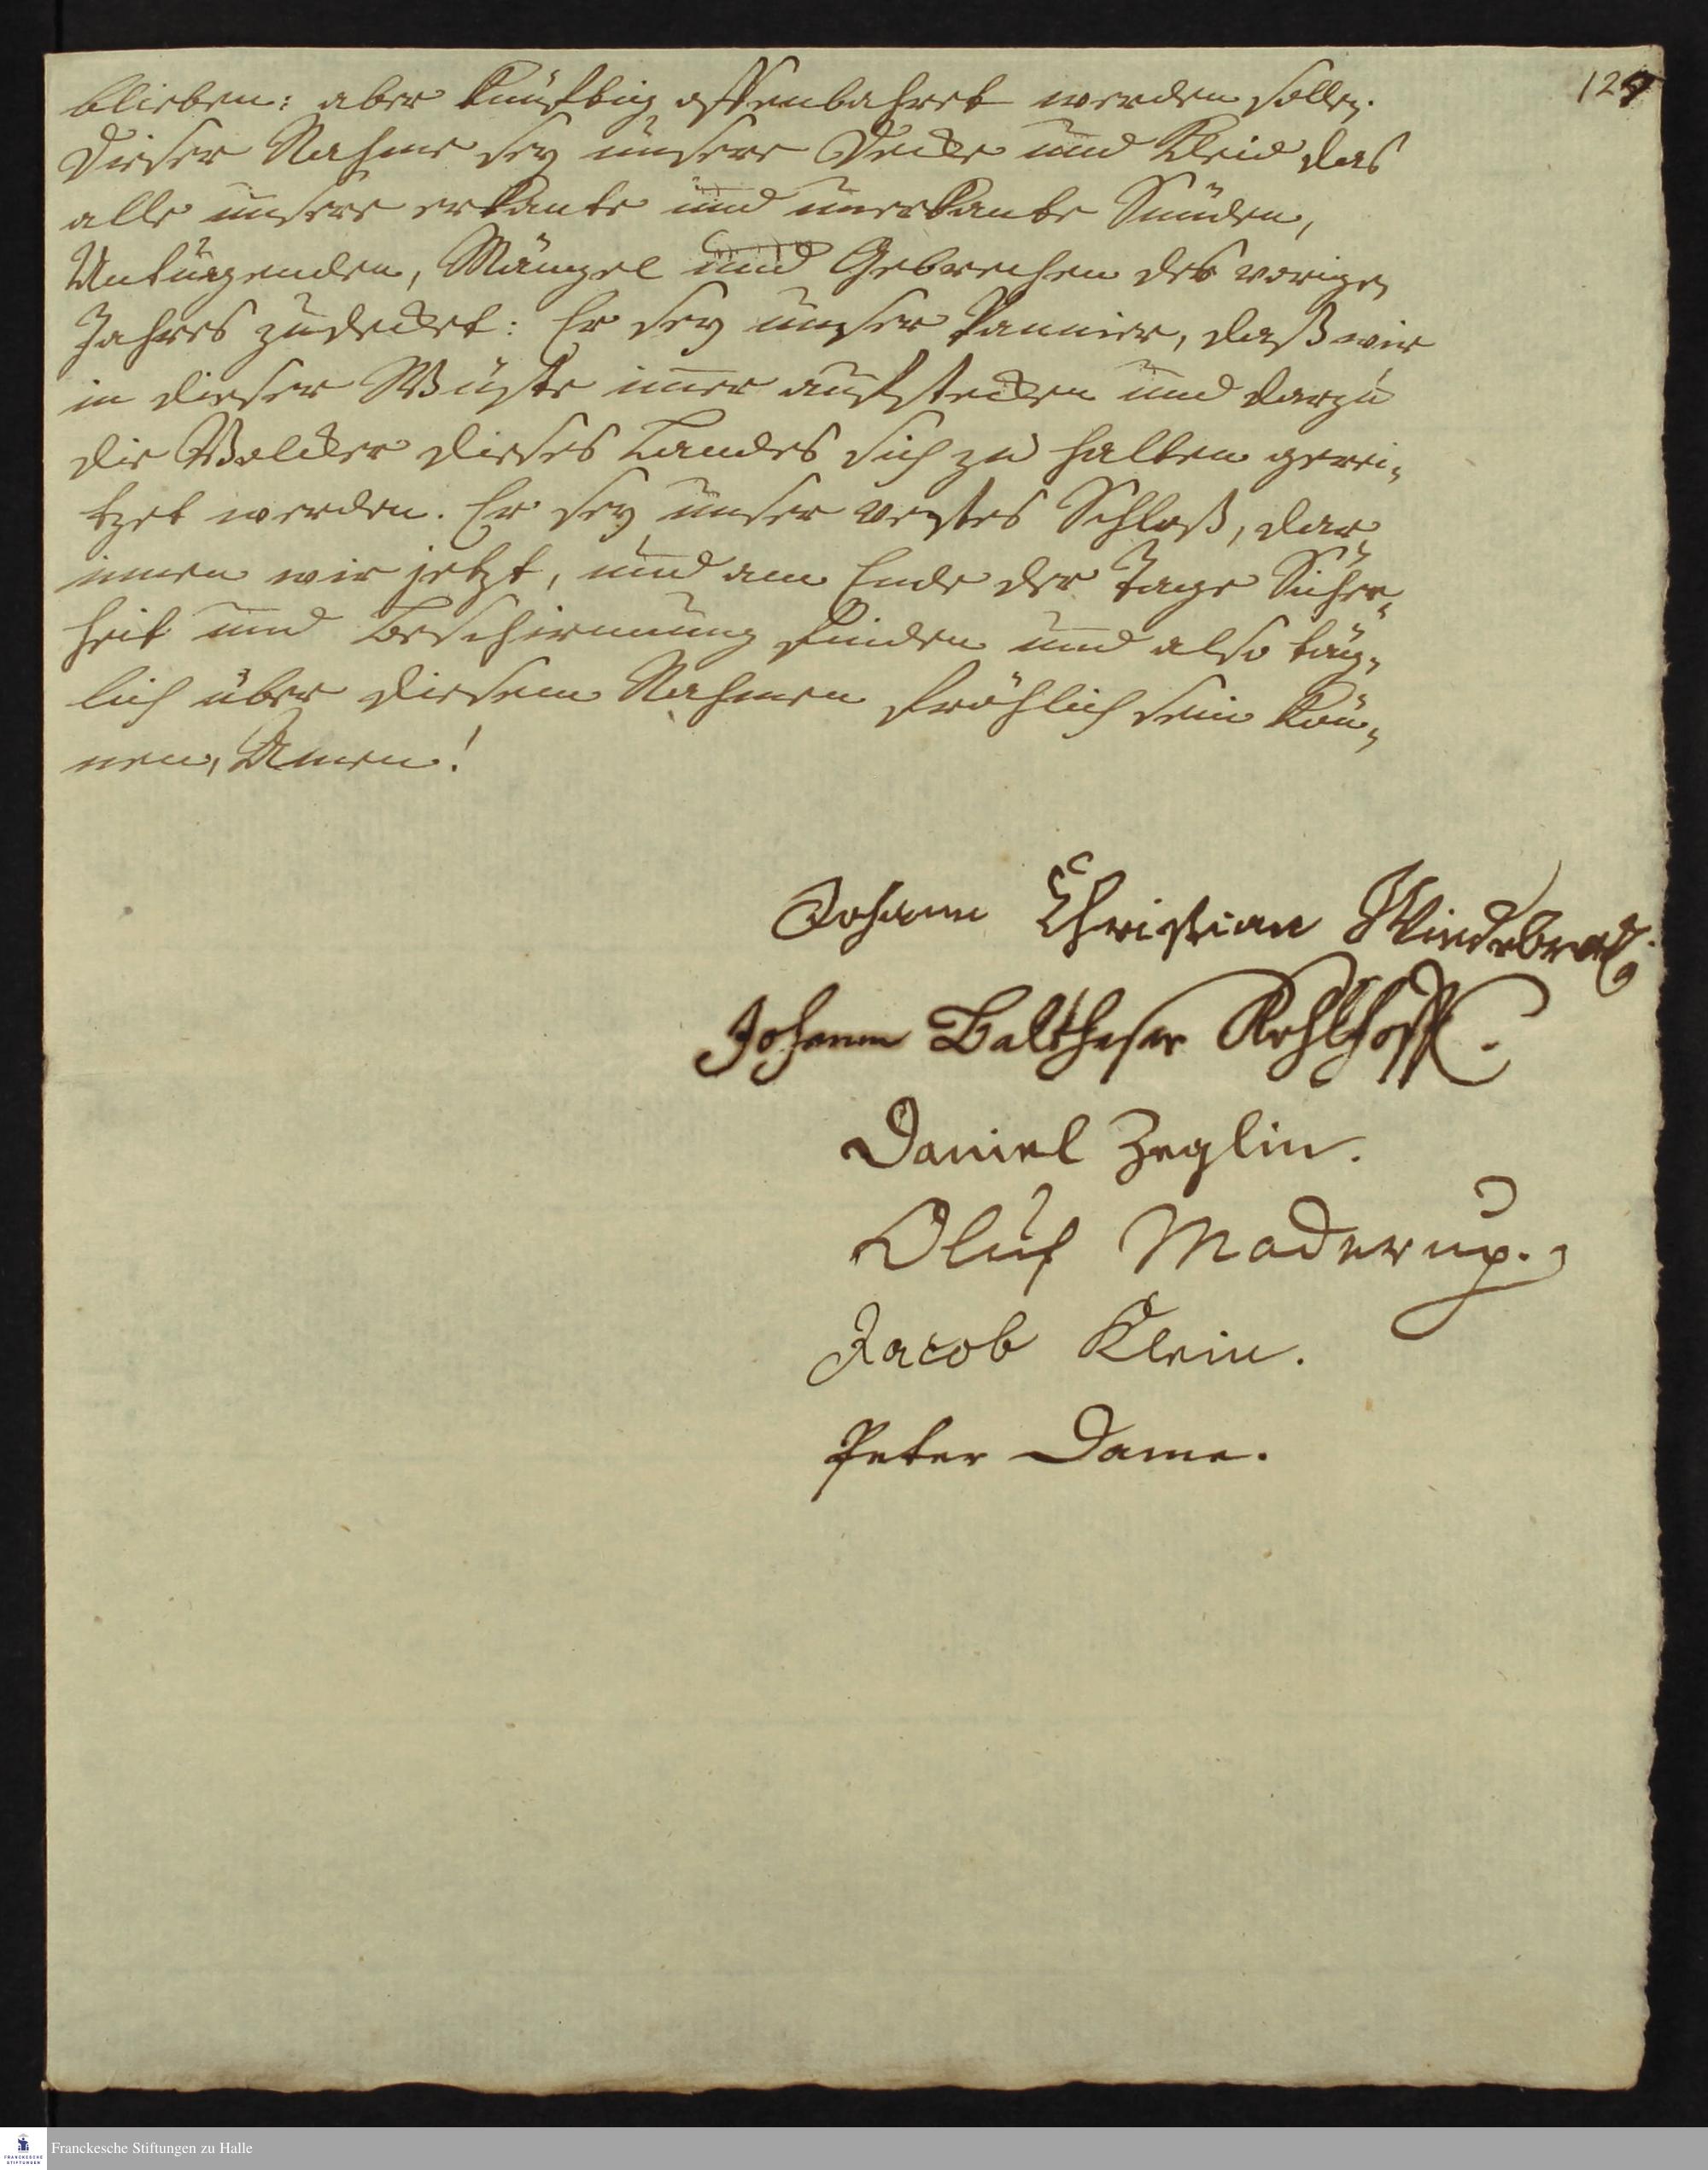 127
blieben: aber künftig offenbahret werden sollen.
Dieser Nahme sey unsere Decke und Kleid das
alle unsere erkante und unerkante Sünden,
Untugenden, Mängel und Gebrechen des vorigen
Jahres zudecket: Er sey unser Pannier, daß wir
in dieser Wüste imer aufstecken und darzu
die Völcker dieses Landes sich zu halten gerei-
tzet werden. Er sey unser vestes Schloß, dar-
innen wir jetzt, und am Ende der Tage Sicher-
heit und Beschirmung finden und also täg-
lich über diesem Nahmen fröhlich sein kön-
nen, Amen!
Johann Christian Wiedebrock.
Johann Balthasar Kohlhoff.
Daniel Zeglin.
Oluf Maderup.
Jacob Klein.
Peter Dame.
FRANCKESCHE STIFTUNGEN
Franckesche Stiftungen zu Halle